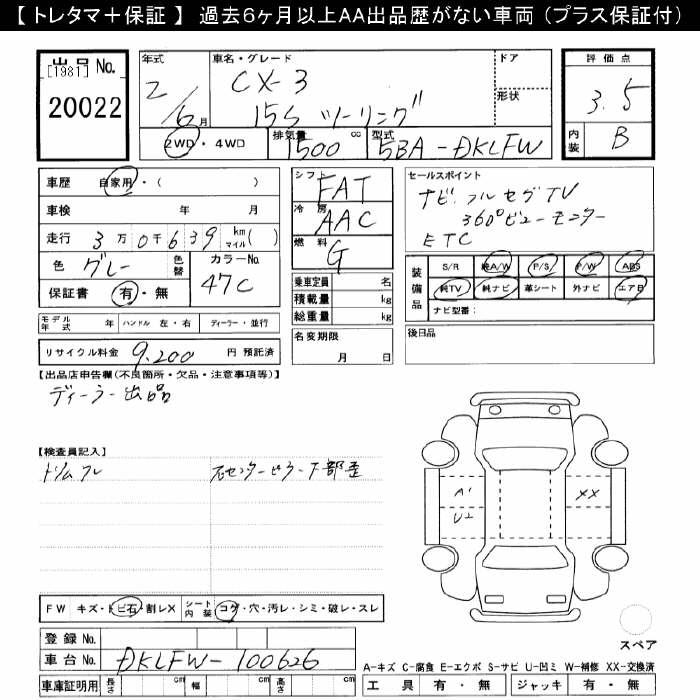 【 トレタマ＋保証 】 過去６ヶ月以上ＡＡ出品歴がない車両（プラス保証付）
出品 No.
[1981]
20022
年式
2/6月
車名・グレード
CX-3
15S ツーリング
ドア
形状
2WD・4WD
排気量 1500 cc
型式 5BA-DKLFW
評価点
3.5
内装 B
車歴 自家用・( )
車検 年 月
走行 3万0千639 km マイル( )
色 グレー 色替
カラーNo. 47C
保証書 有・無
シフト FAT
冷房 AAC
燃料 G
乗車定員 名
積載量 kg
総重量 kg
セールスポイント
ナビ フルセグTV
360°ビューモニター
ETC
装備品
S/R 純A/W P/S P/W ABS
純TV 純ナビ 革シート 外ナビ エアB
ナビ型番:
モデル年式 年 ハンドル 左・右 ディーラー・並行
名変期限
月 日
後日品
リサイクル料金 9,200 円 預託済
【出品店申告欄(不良箇所・欠品・注意事項等)】
ディーラー出品
【検査員記入】
トリムスレ
右センターピラー下部歪
A1
U2
XX
FW キズ・トビ石・割レX
シート内装 コゲ・穴・汚レ・シミ・破レ・スレ
登録 No.
車台 No. DKLFW-100626
車庫証明用 長さ cm 幅 cm 高さ cm
スペア
A-キズ C-腐食 E-エクボ S-サビ U-凹ミ W-補修 XX-交換済
工具 有・無 ジャッキ 有・無